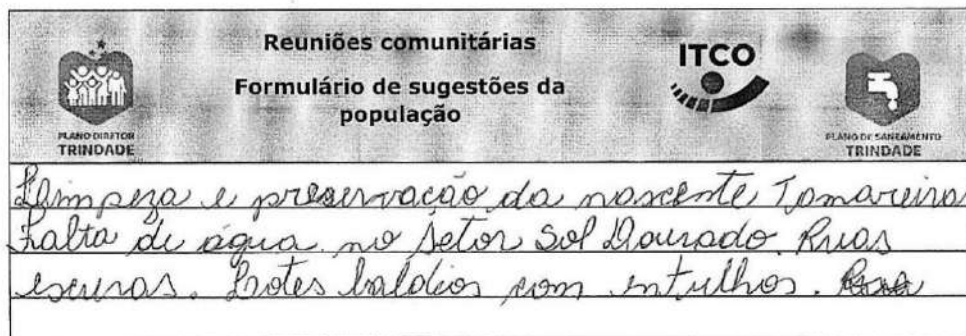 Reuniões comunitárias
Formulário de sugestões da
população
ITCO
PLANO DIRETOR
TRINDADE
PLANO DE SANEAMENTO
TRINDADE
Limpeza e preservação da nascente Tamareira
Falta de água no setor Sol Dourado. Ruas
escuras. Lotes baldios com entulhos.